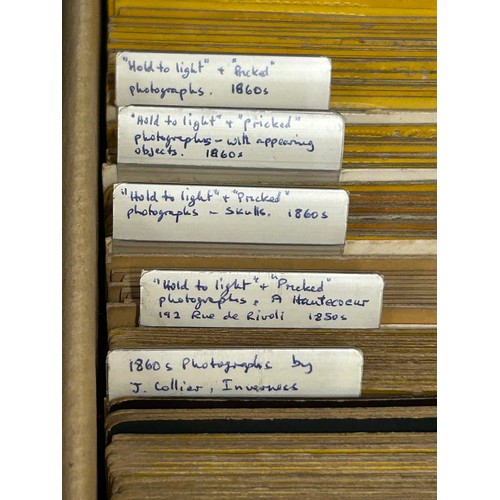 "Hold to light" + "Pricked"
photographs. 1860s
"Hold to light" + "pricked"
photographs – with appearing
objects. 1860s
"Hold to light" + "Pricked"
photographs – Skulls. 1860s
"Hold to light" + "Pricked"
photographs, A Hautecoeur
192 Rue de Rivoli 1850s
1860s Photographs by
J. Collier, Inverness